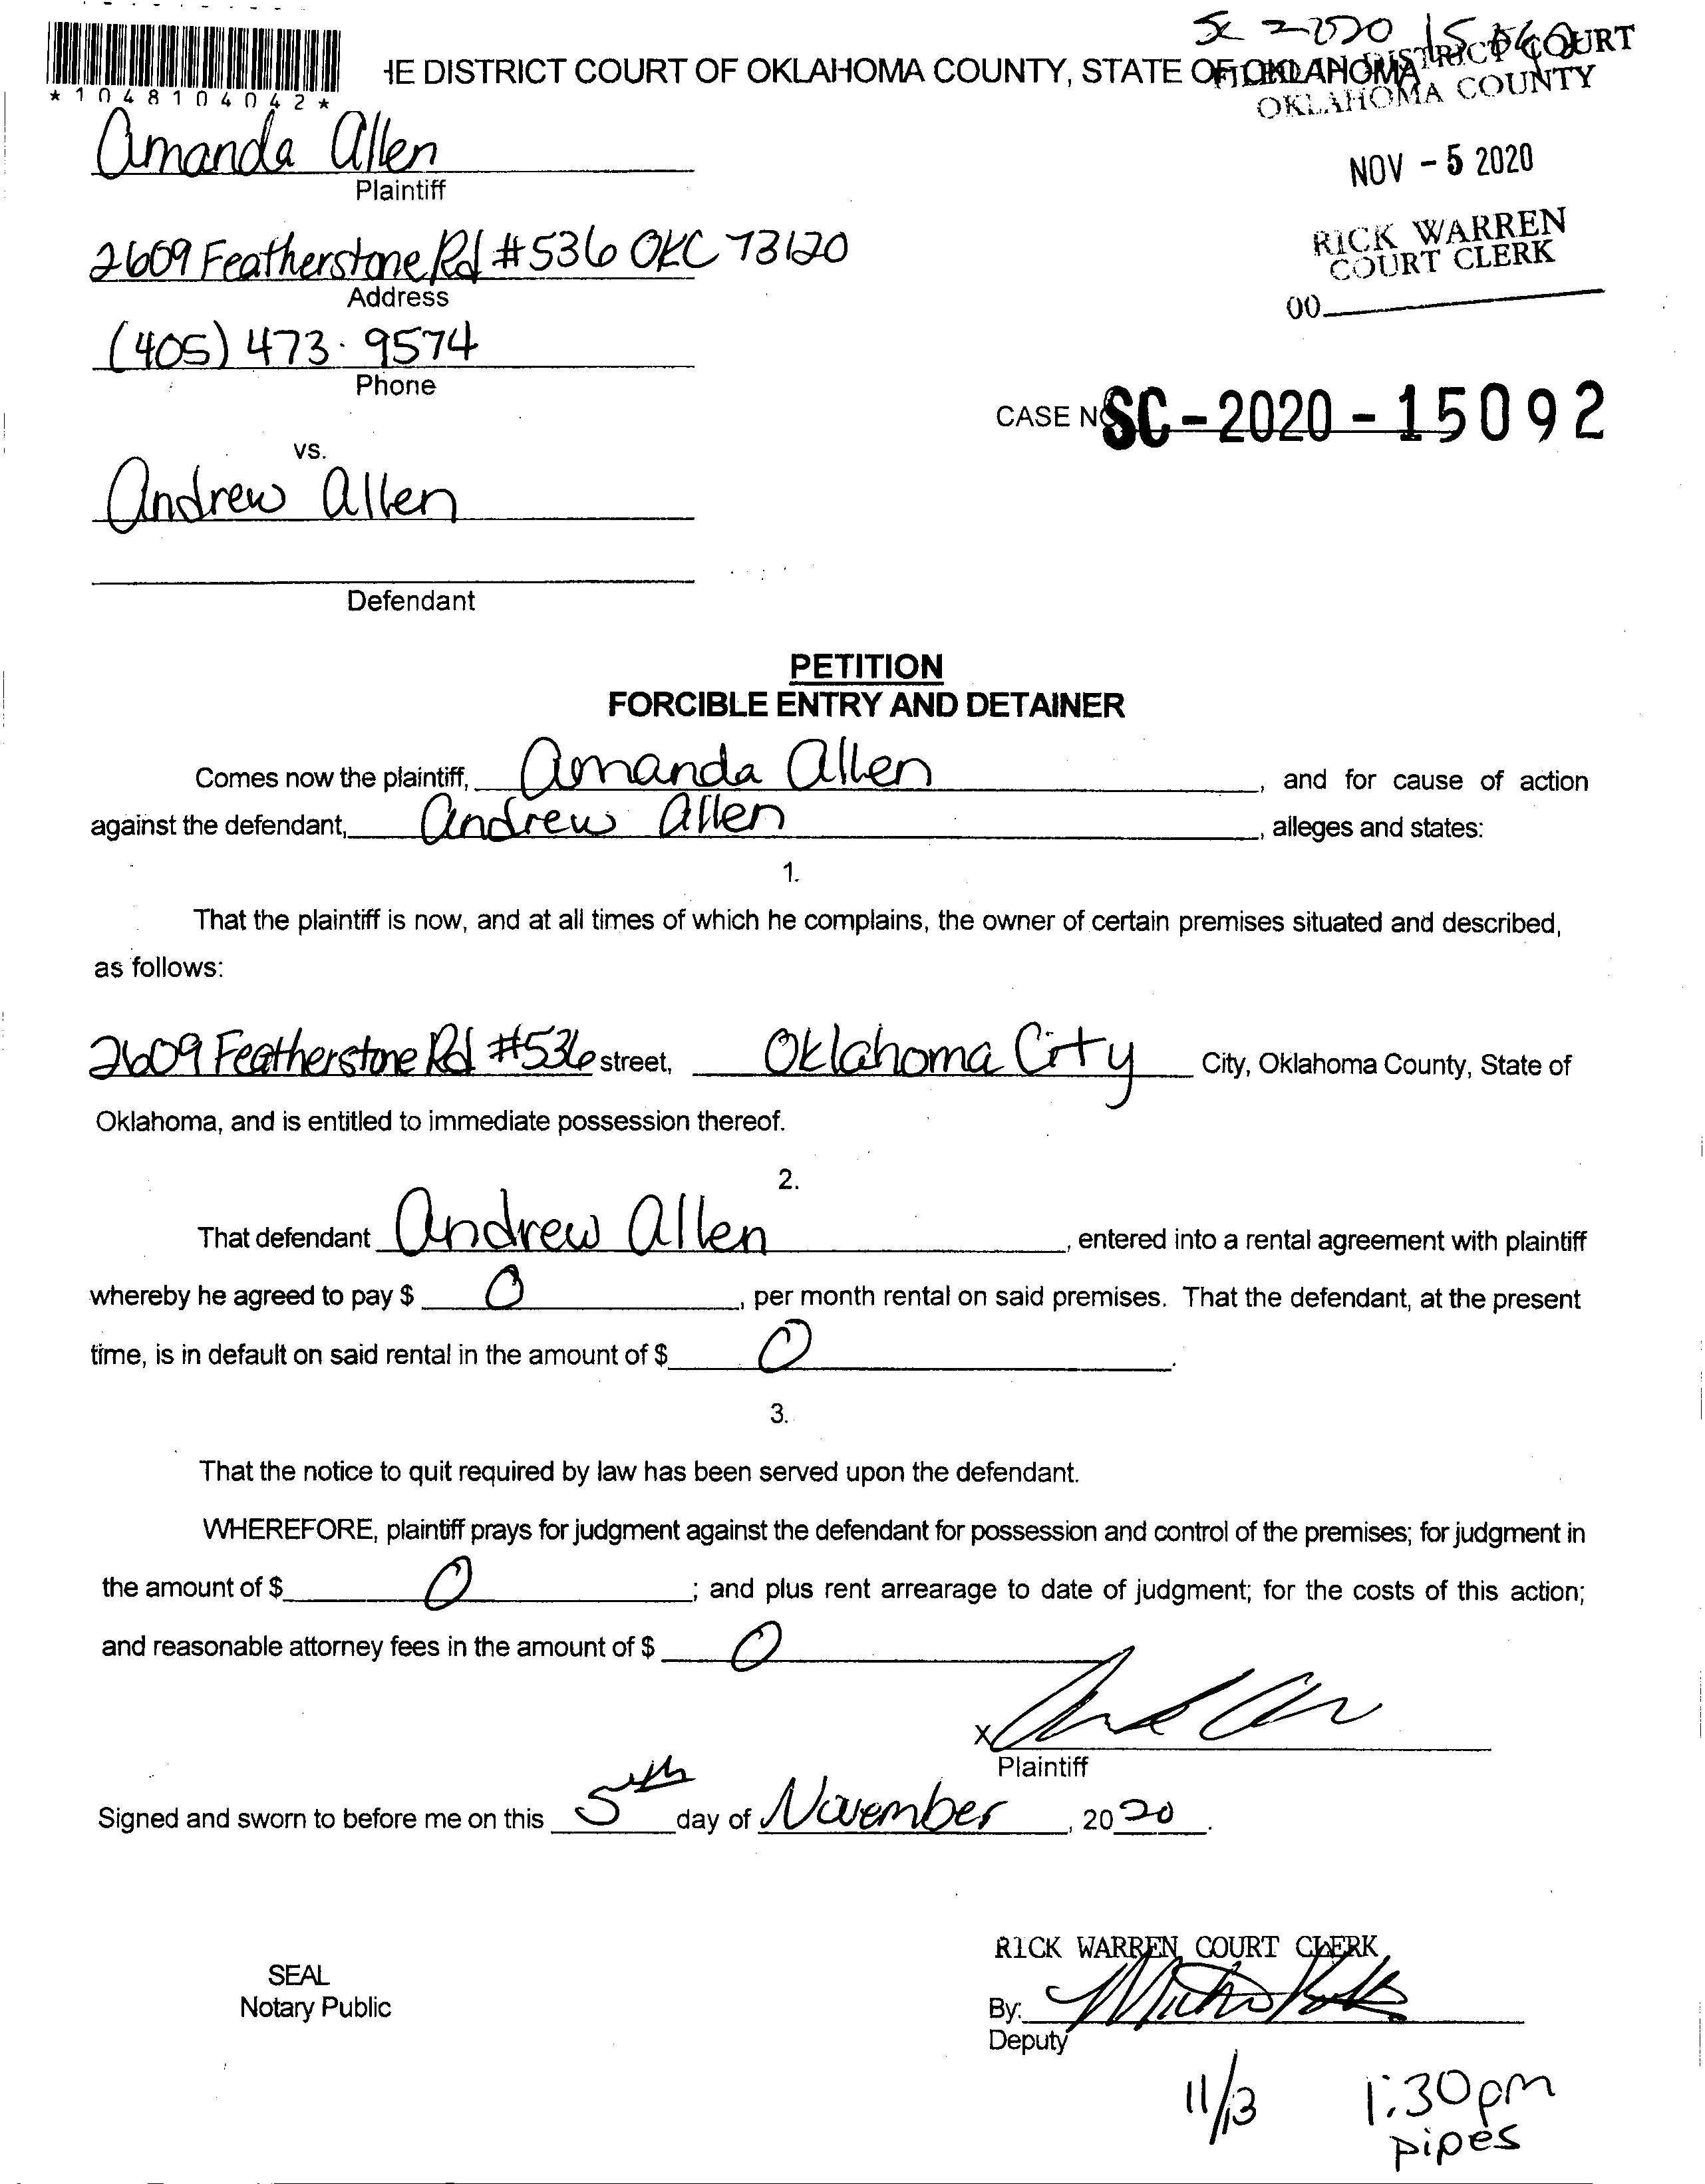 SC 2020 15
*1048104042*
HE DISTRICT COURT OF OKLAHOMA COUNTY, STATE OF OKLAHOMA
FILED IN DISTRICT COURT
OKLAHOMA COUNTY
Amanda Allen
Plaintiff
NOV - 5 2020
2609 Featherstone Rd #536 OKC 73120
Address
RICK WARREN
COURT CLERK
00
(405) 473. 9574
Phone
CASE NO SC-2020-15092
vs.
Andrew Allen
Defendant
PETITION
FORCIBLE ENTRY AND DETAINER
Comes now the plaintiff, Amanda Allen, and for cause of action
against the defendant, Andrew Allen, alleges and states:
1.
That the plaintiff is now, and at all times of which he complains, the owner of certain premises situated and described,
as follows:
2609 Featherstone Rd #536 street, Oklahoma City City, Oklahoma County, State of
Oklahoma, and is entitled to immediate possession thereof.
2.
That defendant Andrew Allen, entered into a rental agreement with plaintiff
whereby he agreed to pay $ 0, per month rental on said premises. That the defendant, at the present
time, is in default on said rental in the amount of $ 0.
3.
That the notice to quit required by law has been served upon the defendant.
WHEREFORE, plaintiff prays for judgment against the defendant for possession and control of the premises; for judgment in
the amount of $ 0; and plus rent arrearage to date of judgment; for the costs of this action;
and reasonable attorney fees in the amount of $ 0
X
Plaintiff
Signed and sworn to before me on this 5th day of November, 2020.
RICK WARREN, COURT CLERK
SEAL
Notary Public
By:
Deputy
11/13 1:30pm
pipes